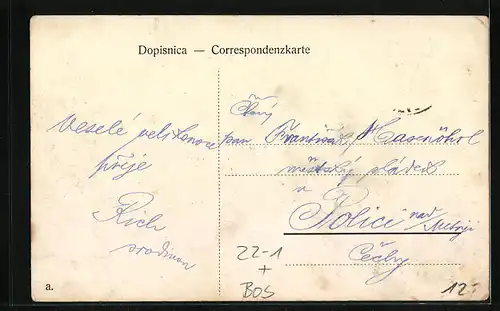 Dopisnica — Correspondenzkarte
Veselé velikonoce
přeje
Rich
s rodinou
Ctěný
pan František Hasenöhrl
městský sládek
v
Polici nad Metují
Čechy
22-1
+
BOS
a.
12.-